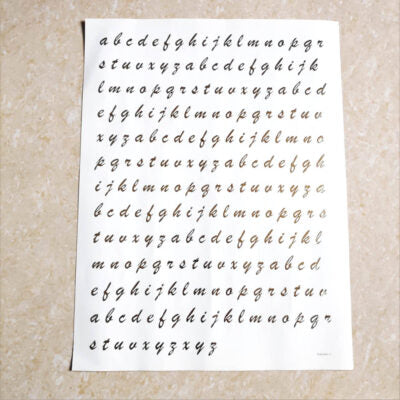 abcdefghijklmnopqr
stuvxyzabcdefghijkl
mnopqrstuvxyzabcd
efghijklmnopqrstuv
xyzabcdefghijklmno
pqrstuvxyzabcdefgh
ijklmnopqrstuvxyza
bcdefghijklmnopqrs
tuvxyzabcdefghijkl
mnopqrstuvxyzabcd
efghijklmnopqrstuv
abcdefghijklmnopqr
stuvxyzxyz